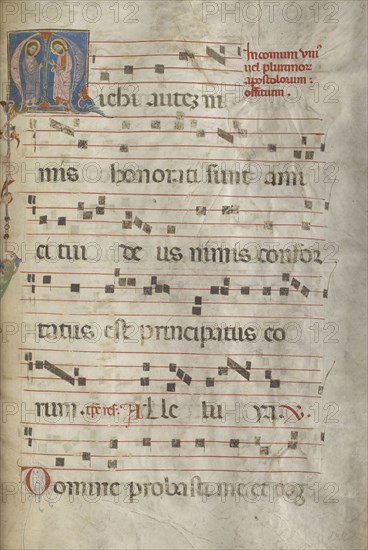 In comuni uni'
uel plurimor
apostolorum:
offitium.
Michi autez ni
mis honorati sunt ami
ci tui de us nimis confor
tatus est principatus eo
rum. Alle lu ya
Domine probasti me et cog